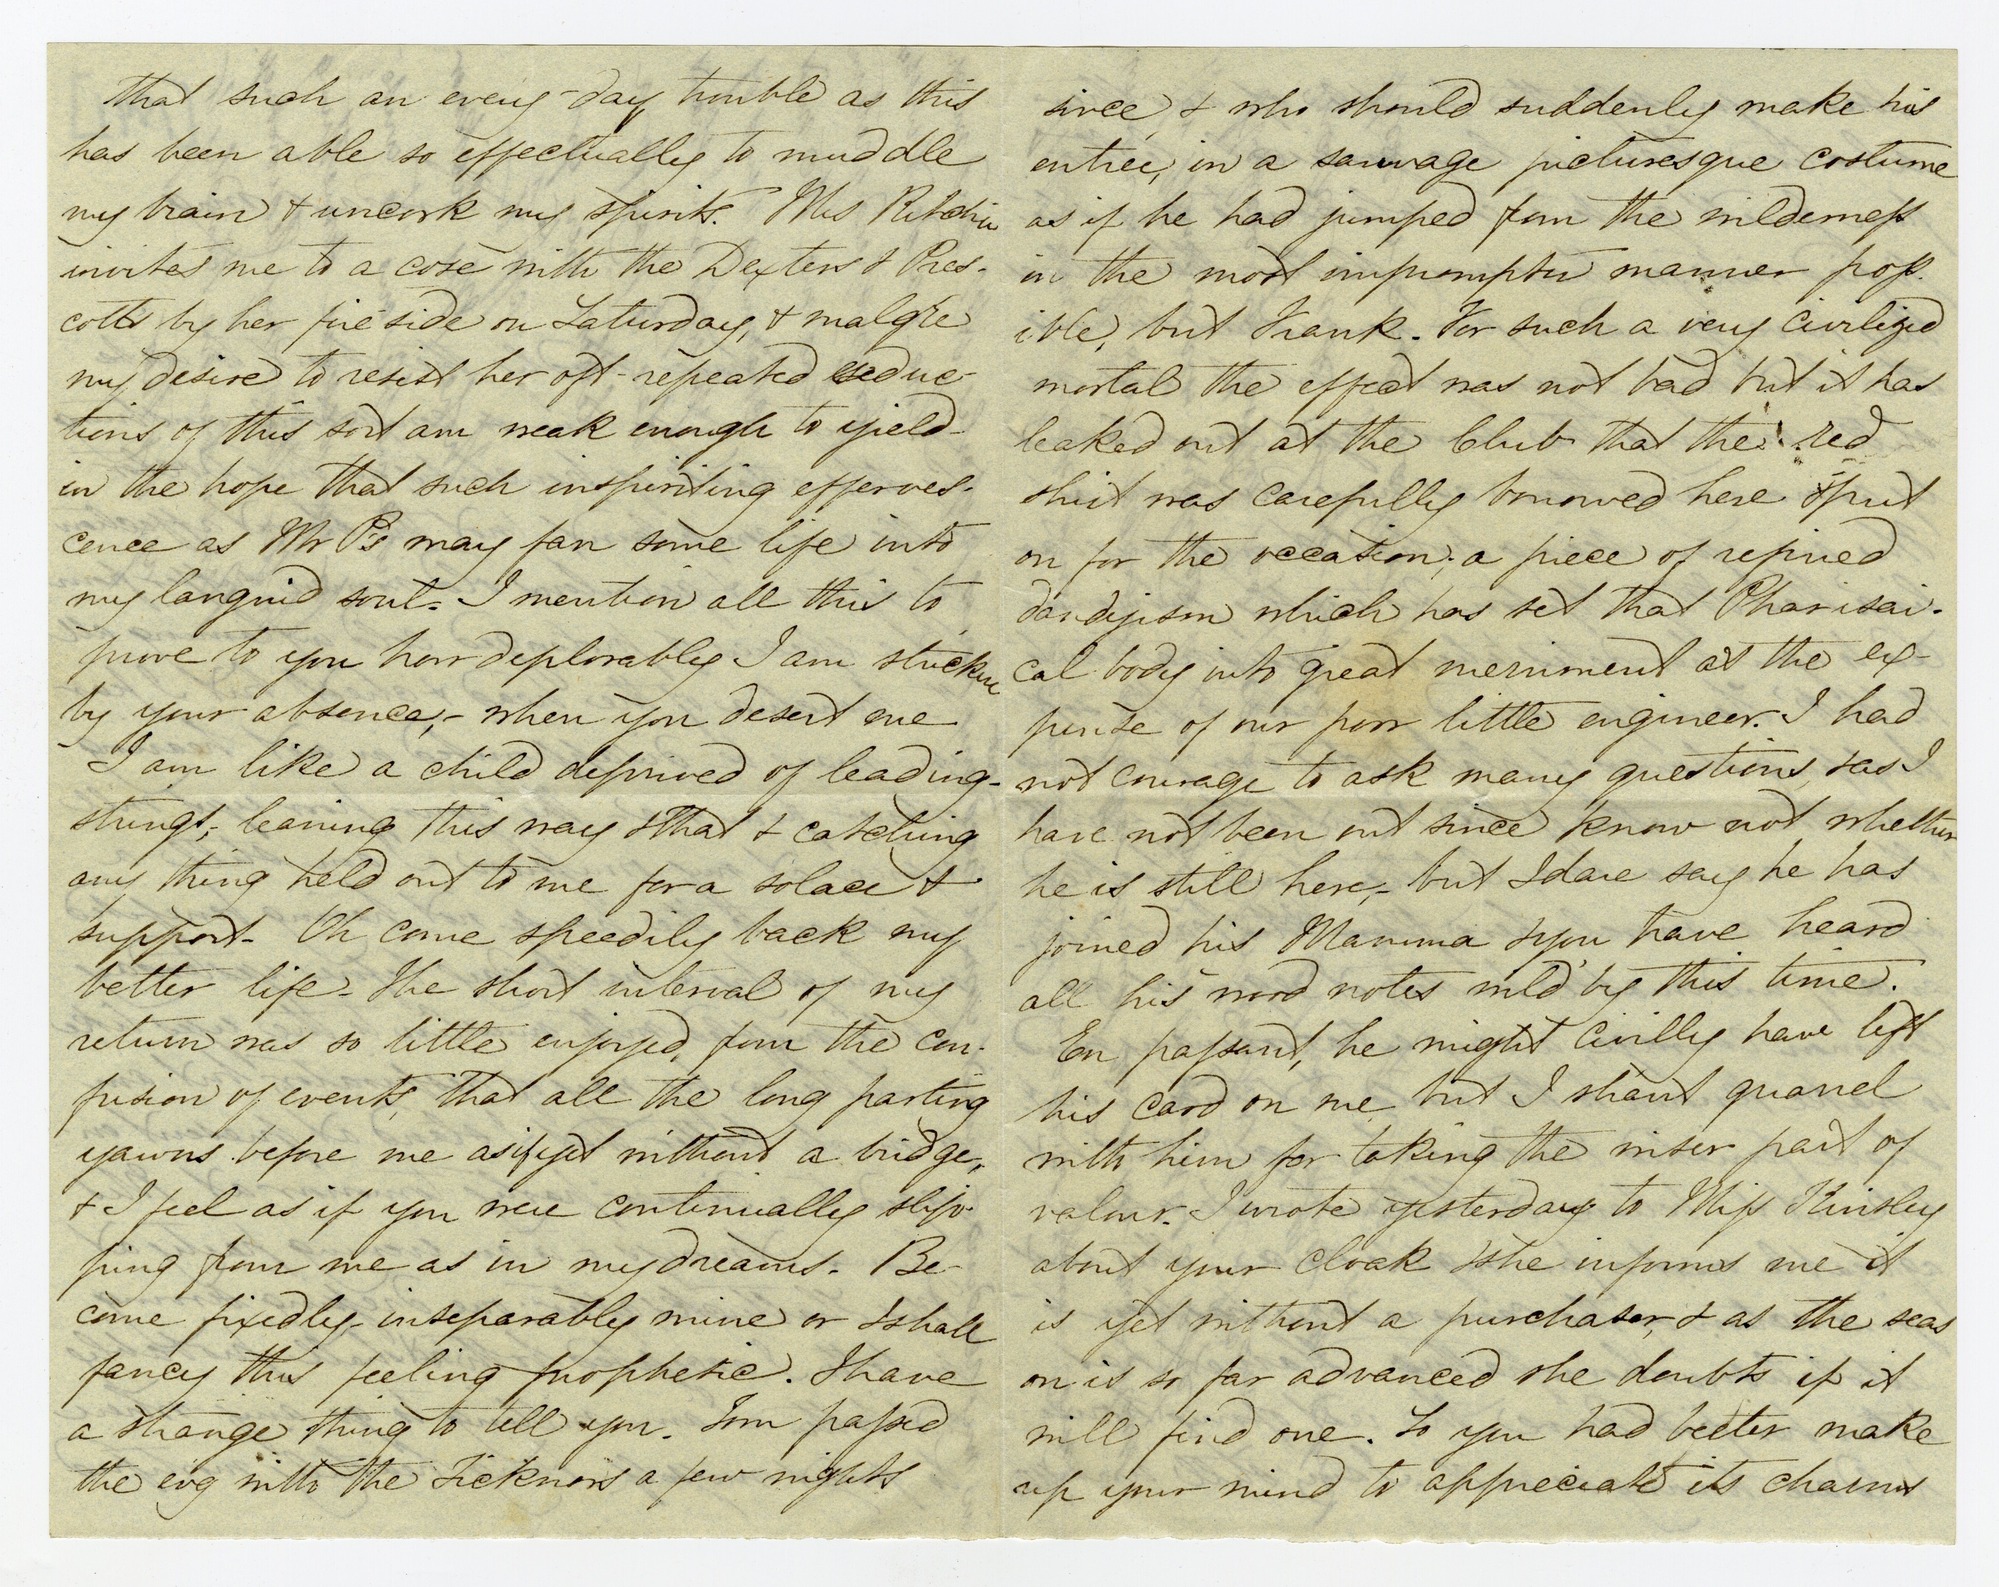 that such an every-day trouble as this
has been able so effectually to muddle
my brain & uncork my spirits. Mrs Ritchie
invites me to a cose with the Dexters & Pres-
cotts by her fireside on Saturday, & malgre
my desire to resist her oft-repeated seduc-
tions of this sort am weak enough to yield
in the hope that such inspiriting efferves-
cence as Mr P's may fan some life into
my languid soul. I mention all this to
prove to you how deplorably I am stricken
by your absence,- when you desert me
I am like a child deprived of leading-
strings,- leaning this way & that & catching
any thing held out to me for a solace &
support. Oh come speedily back my
better life. The short interval of my
return was so little enjoyed, from the con-
fusion of events, that all the long parting
yawns before me as if yet without a bridge,
& I feel as if you were continually slip-
ping from me as in my dreams. Be-
come fixedly inseparably mine or I shall
fancy this feeling prophetic. I have
a strange thing to tell you. Tom passed
the evg with the Ticknors a few nights
since, & who should suddenly make his
entree, in a sauvage picturesque costume
as if he had jumped from the wilderness
in the most impromptu manner poss-
ible, but Frank. For such a very civilized
mortal the effect was not bad but it has
leaked out at the Club that the red
shirt was carefully borrowed here & put
on for the occasion; a piece of refined
dandyism which has set that Pharisai-
cal body into great merriment at the ex-
pense of our poor little engineer. I had
not courage to ask many questions, & as I
have not been out since know not whether
he is still here,- but I dare say he has
joined his Mamma & you have heard
all his wood notes wild by this time.
En passant, he might civilly have left
his card on me but I shant quarrel
with him for taking the wiser part of
valour. I wrote yesterday to Miss Kinsley
about your cloak & she informs me it
is yet without a purchaser, & as the seas
on is so far advanced she doubts if it
will find one. So you had better make
up your mind to appreciate its charms